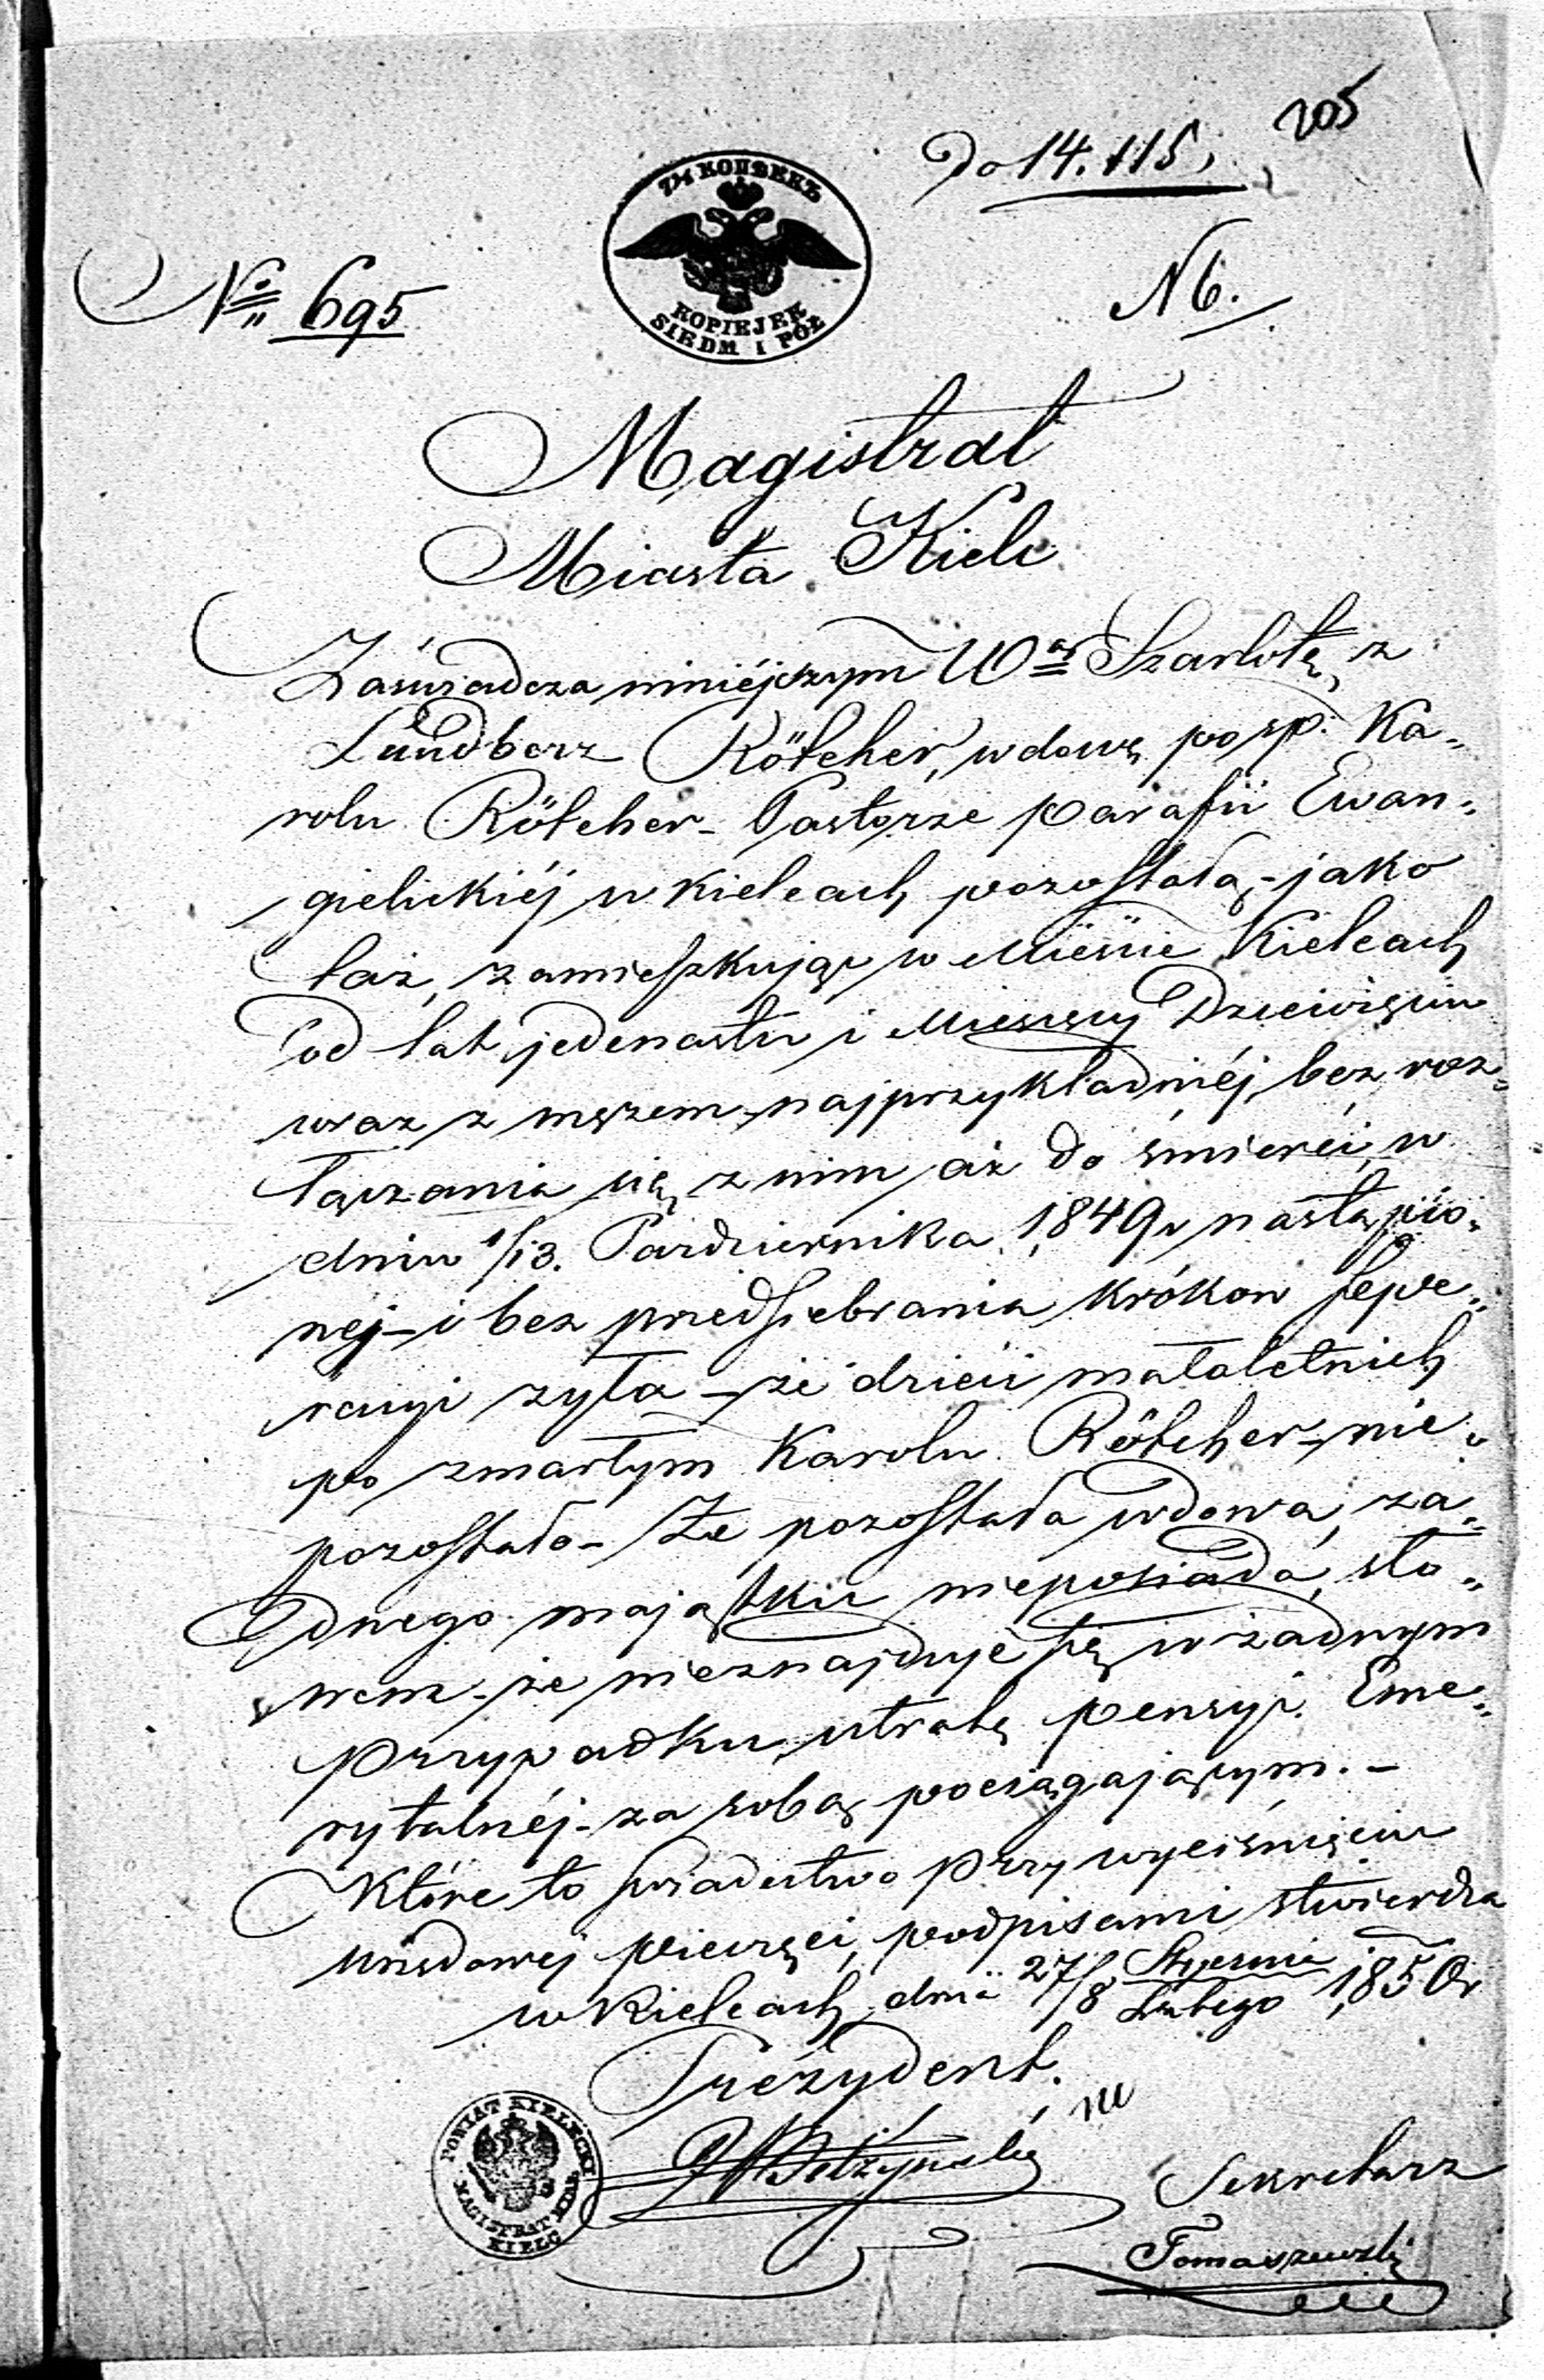 205
Do 14.115.
7½ КОПѢЕКЪ
KOPIEJEK
SIEDM I PÓŁ
No 695
N 6.
Magistrat
Miasta Kielc
Zaświadcza niniéjszym Wą Szarlotę z
Röthcher, wdowę po sp. Ka„
rolu Röthcher - Pastorze parafii Ewan„
gielickiéj w Kielcach pozostałą - jako
taż, zamieszkując w Mieście Kielcach
od lat jedenastu i Miesięcy Dziewięciu
wraz z mężem, najprzykładniéj, bez roz„
łączania się z nim aż do śmierci, w
dniu 1/13. Października 1849 r nastąpio„
néj - i bez przedsiebrania kroków sepe„
racyi żyła - że dzieci małoletnich
po zmarłym Karolu Röthcher - nie
pozostało - Że pozostała wdowa, ża„
dnego majątku nieposiada, sło„
wem - że nieznajduje się w żadnym
przypadku, utratę pensyi Eme„
rytalnéj - za sobą pociągającym. -
Które to świadectwo przy wyciśnięciu
urzędowej pieczęci, podpisami stwierdza
w Kielcach dnia 27/8 Stycznia/Lutego 1850 r
Prezydent.
POWIAT KIELECKI
MAGISTRAT MIAS.
KIELC
Sekretarz
Tomaszewski